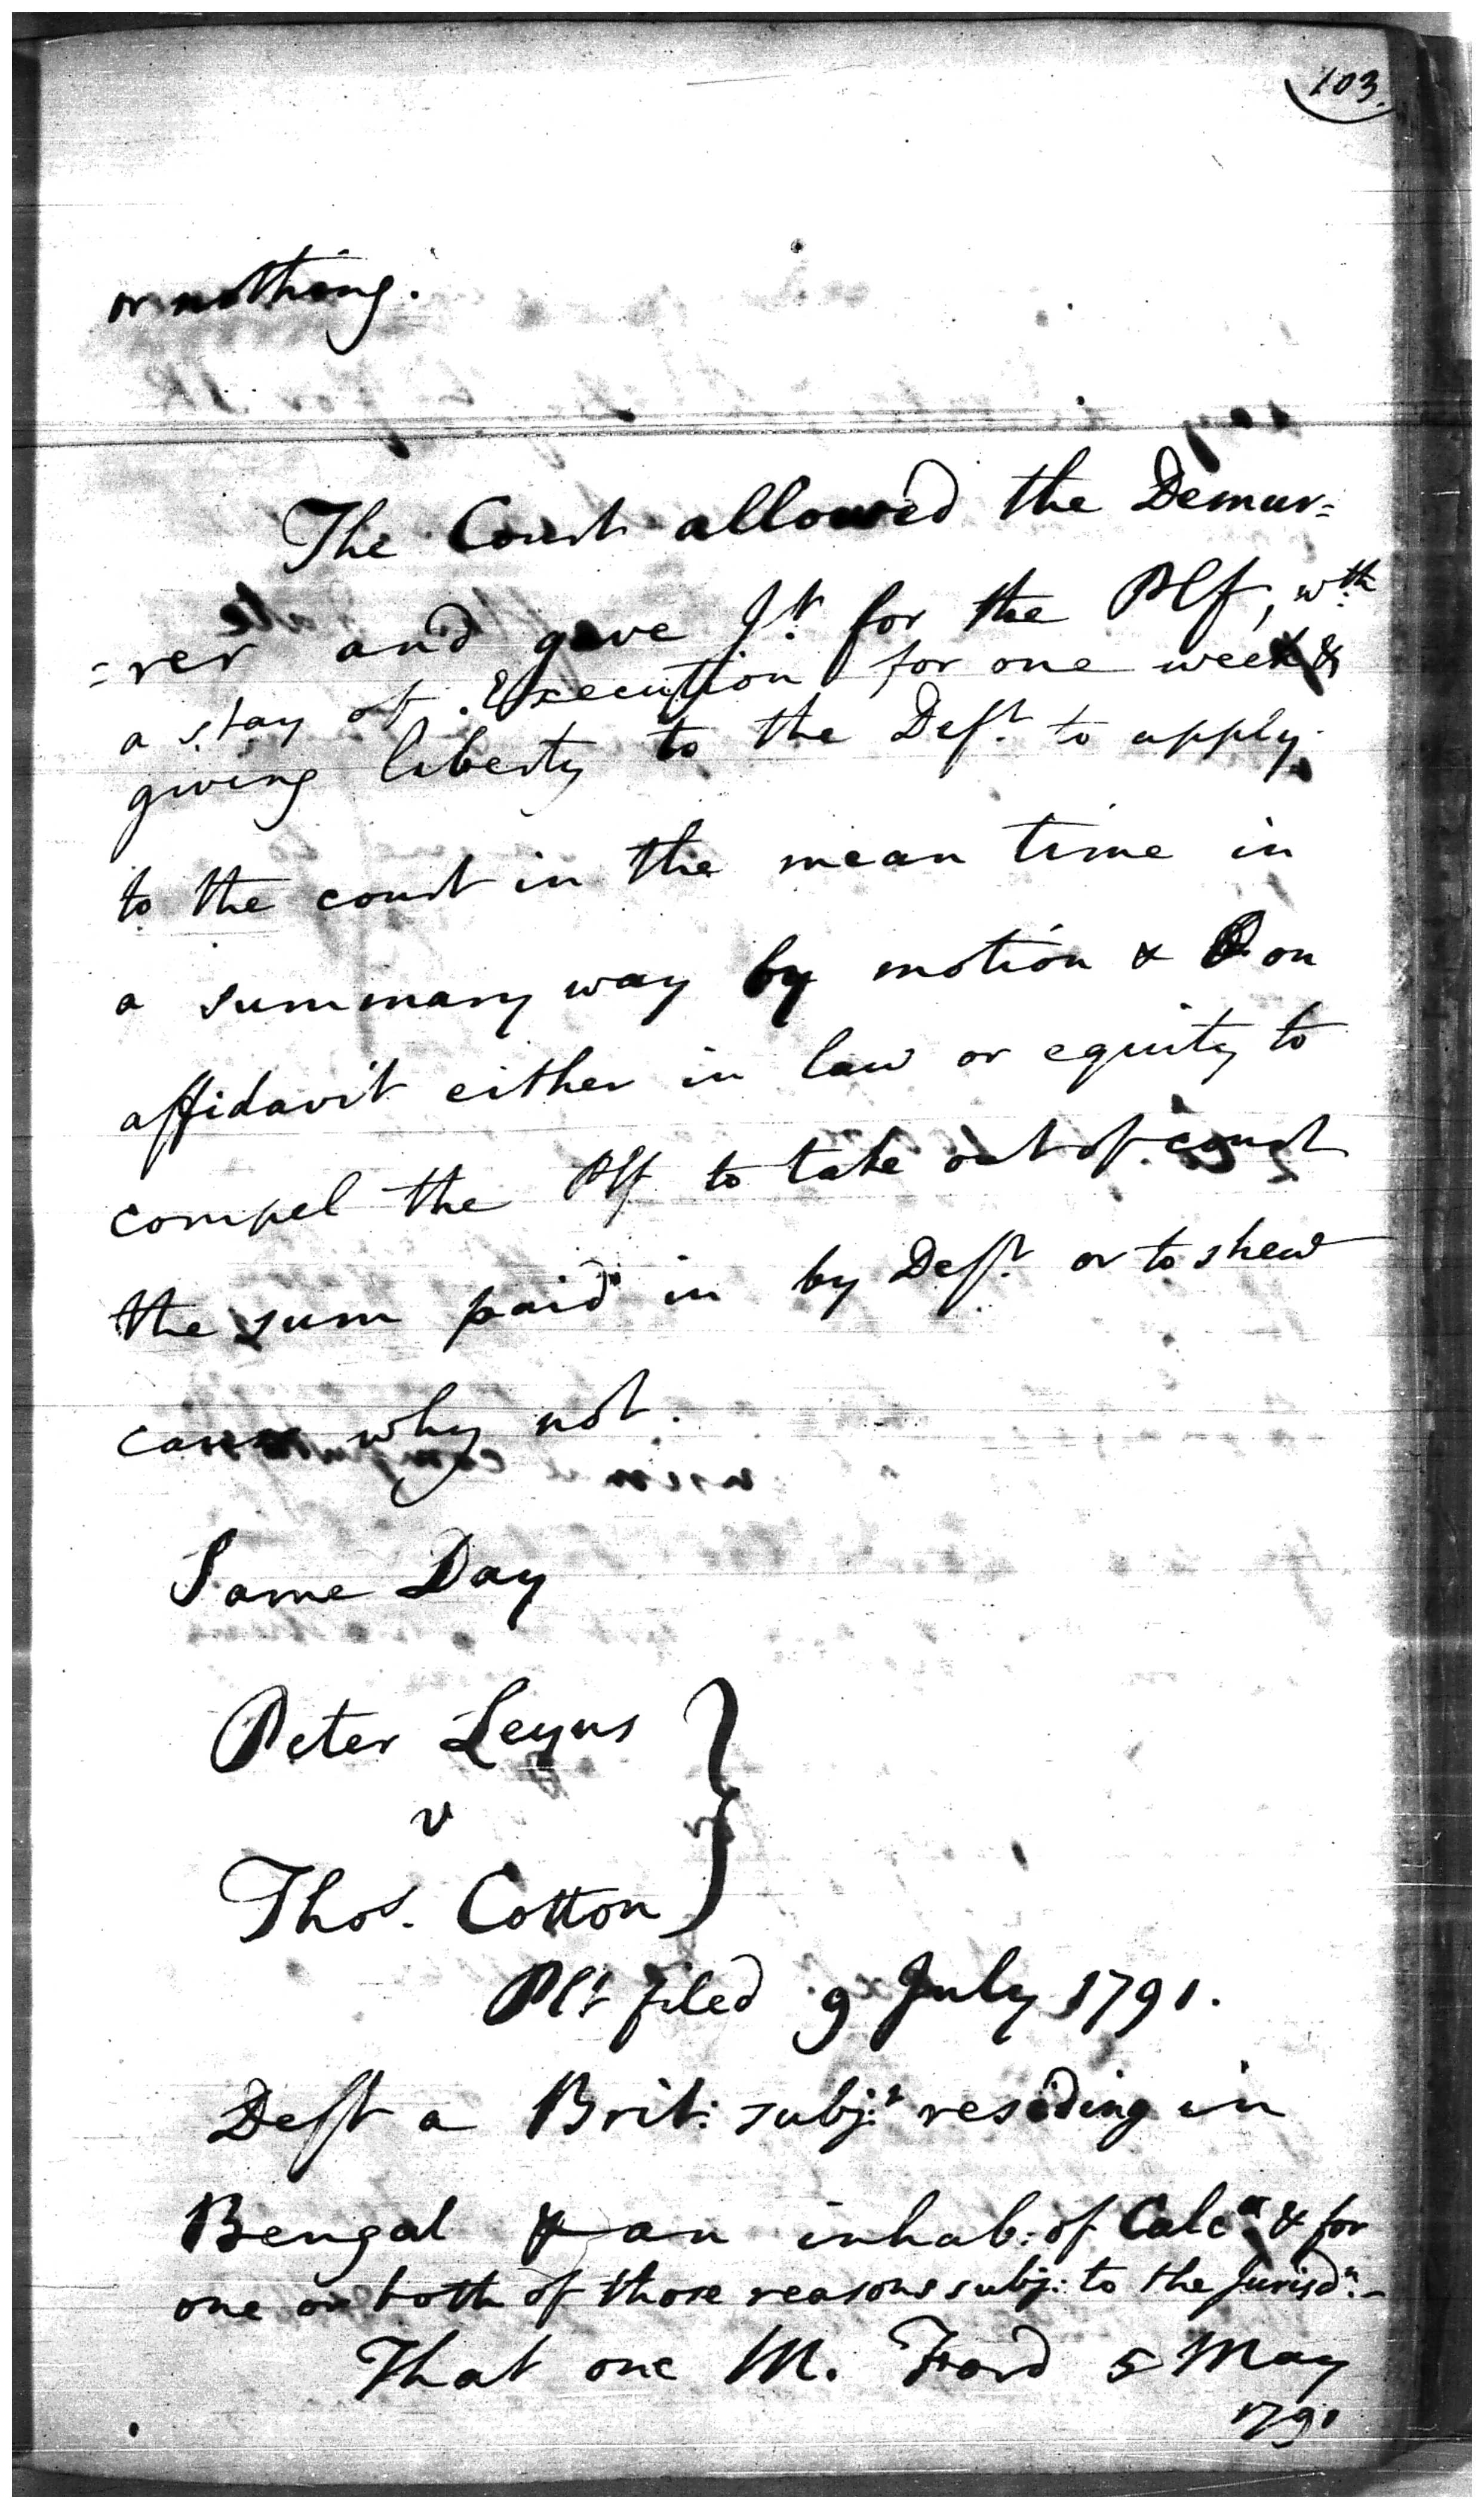 103.
or nothing.
The Court allowed the Demur=
=rer and gave Jt. for the Plf, wth.
a stay of Execution for one week &
giving liberty to the Deft. to apply
to the court in the mean time in
a summary way by motion & on
affidavit either in law or equity to
compel the Plf to take out of court
the sum paid in by Deft. or to shew
cause why not.
Same Day
Peter Leyus
v
Thos. Cotton
Plt filed 9 July 1791.
Deft a Brit: subj:t residing in
Bengal & an inhab: of Calca & for
one or both of those reasons subj: to the Jurisdn.-
That one M. Ford 5 May
1791